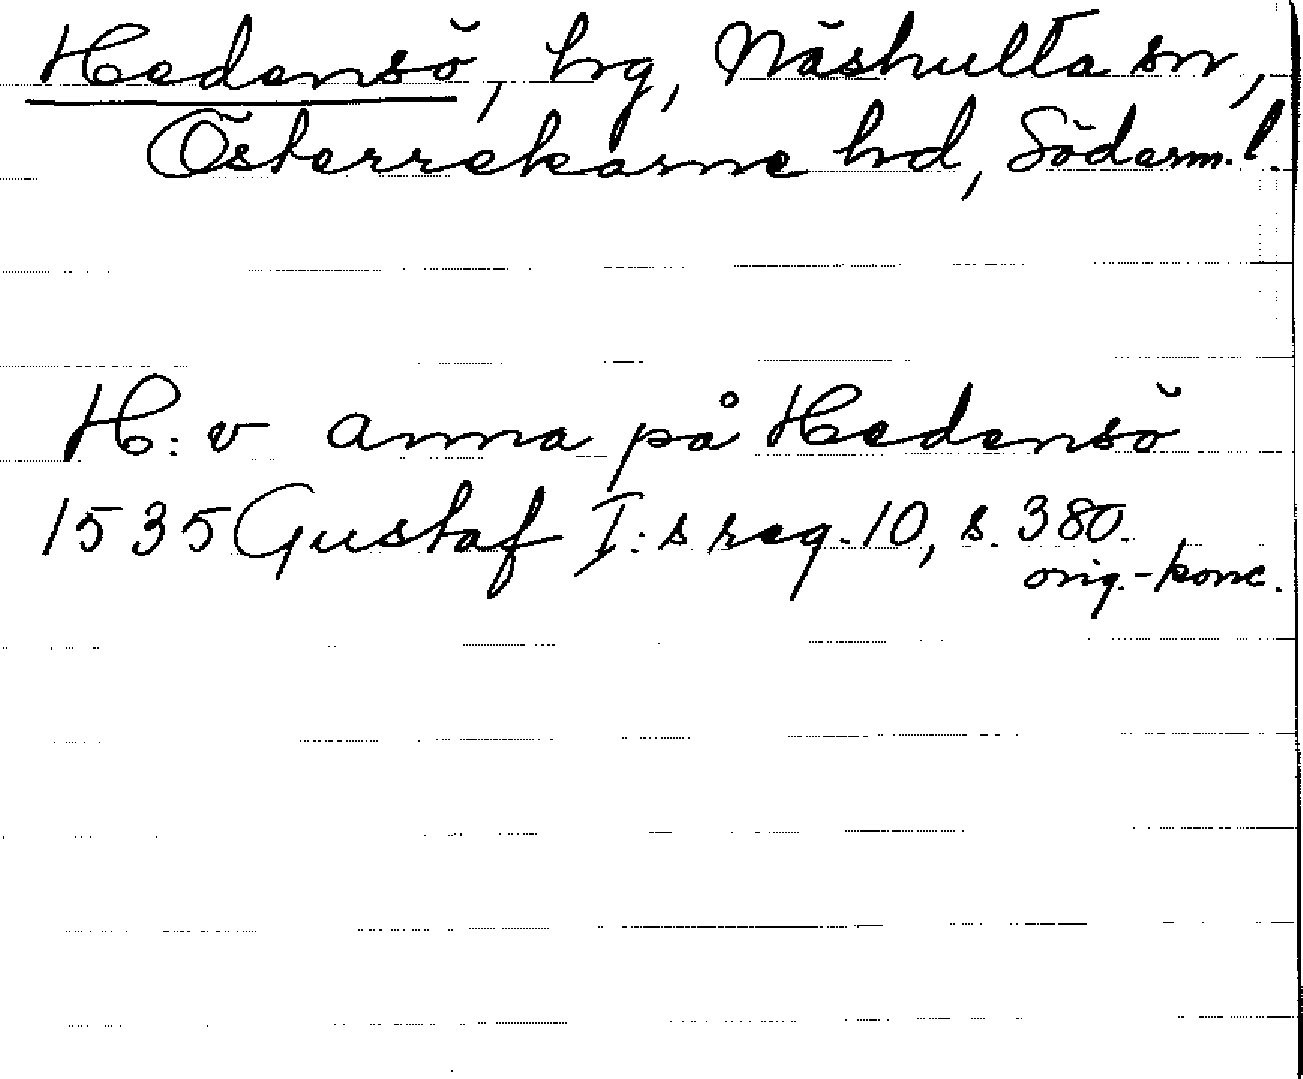 Hedensö, hg, Näshulta sn,
Österrekarne hd, Söderm. l.
H:v anna på Hedensö
1535 Gustaf I:s reg. 10, s. 380.
orig.-konc.